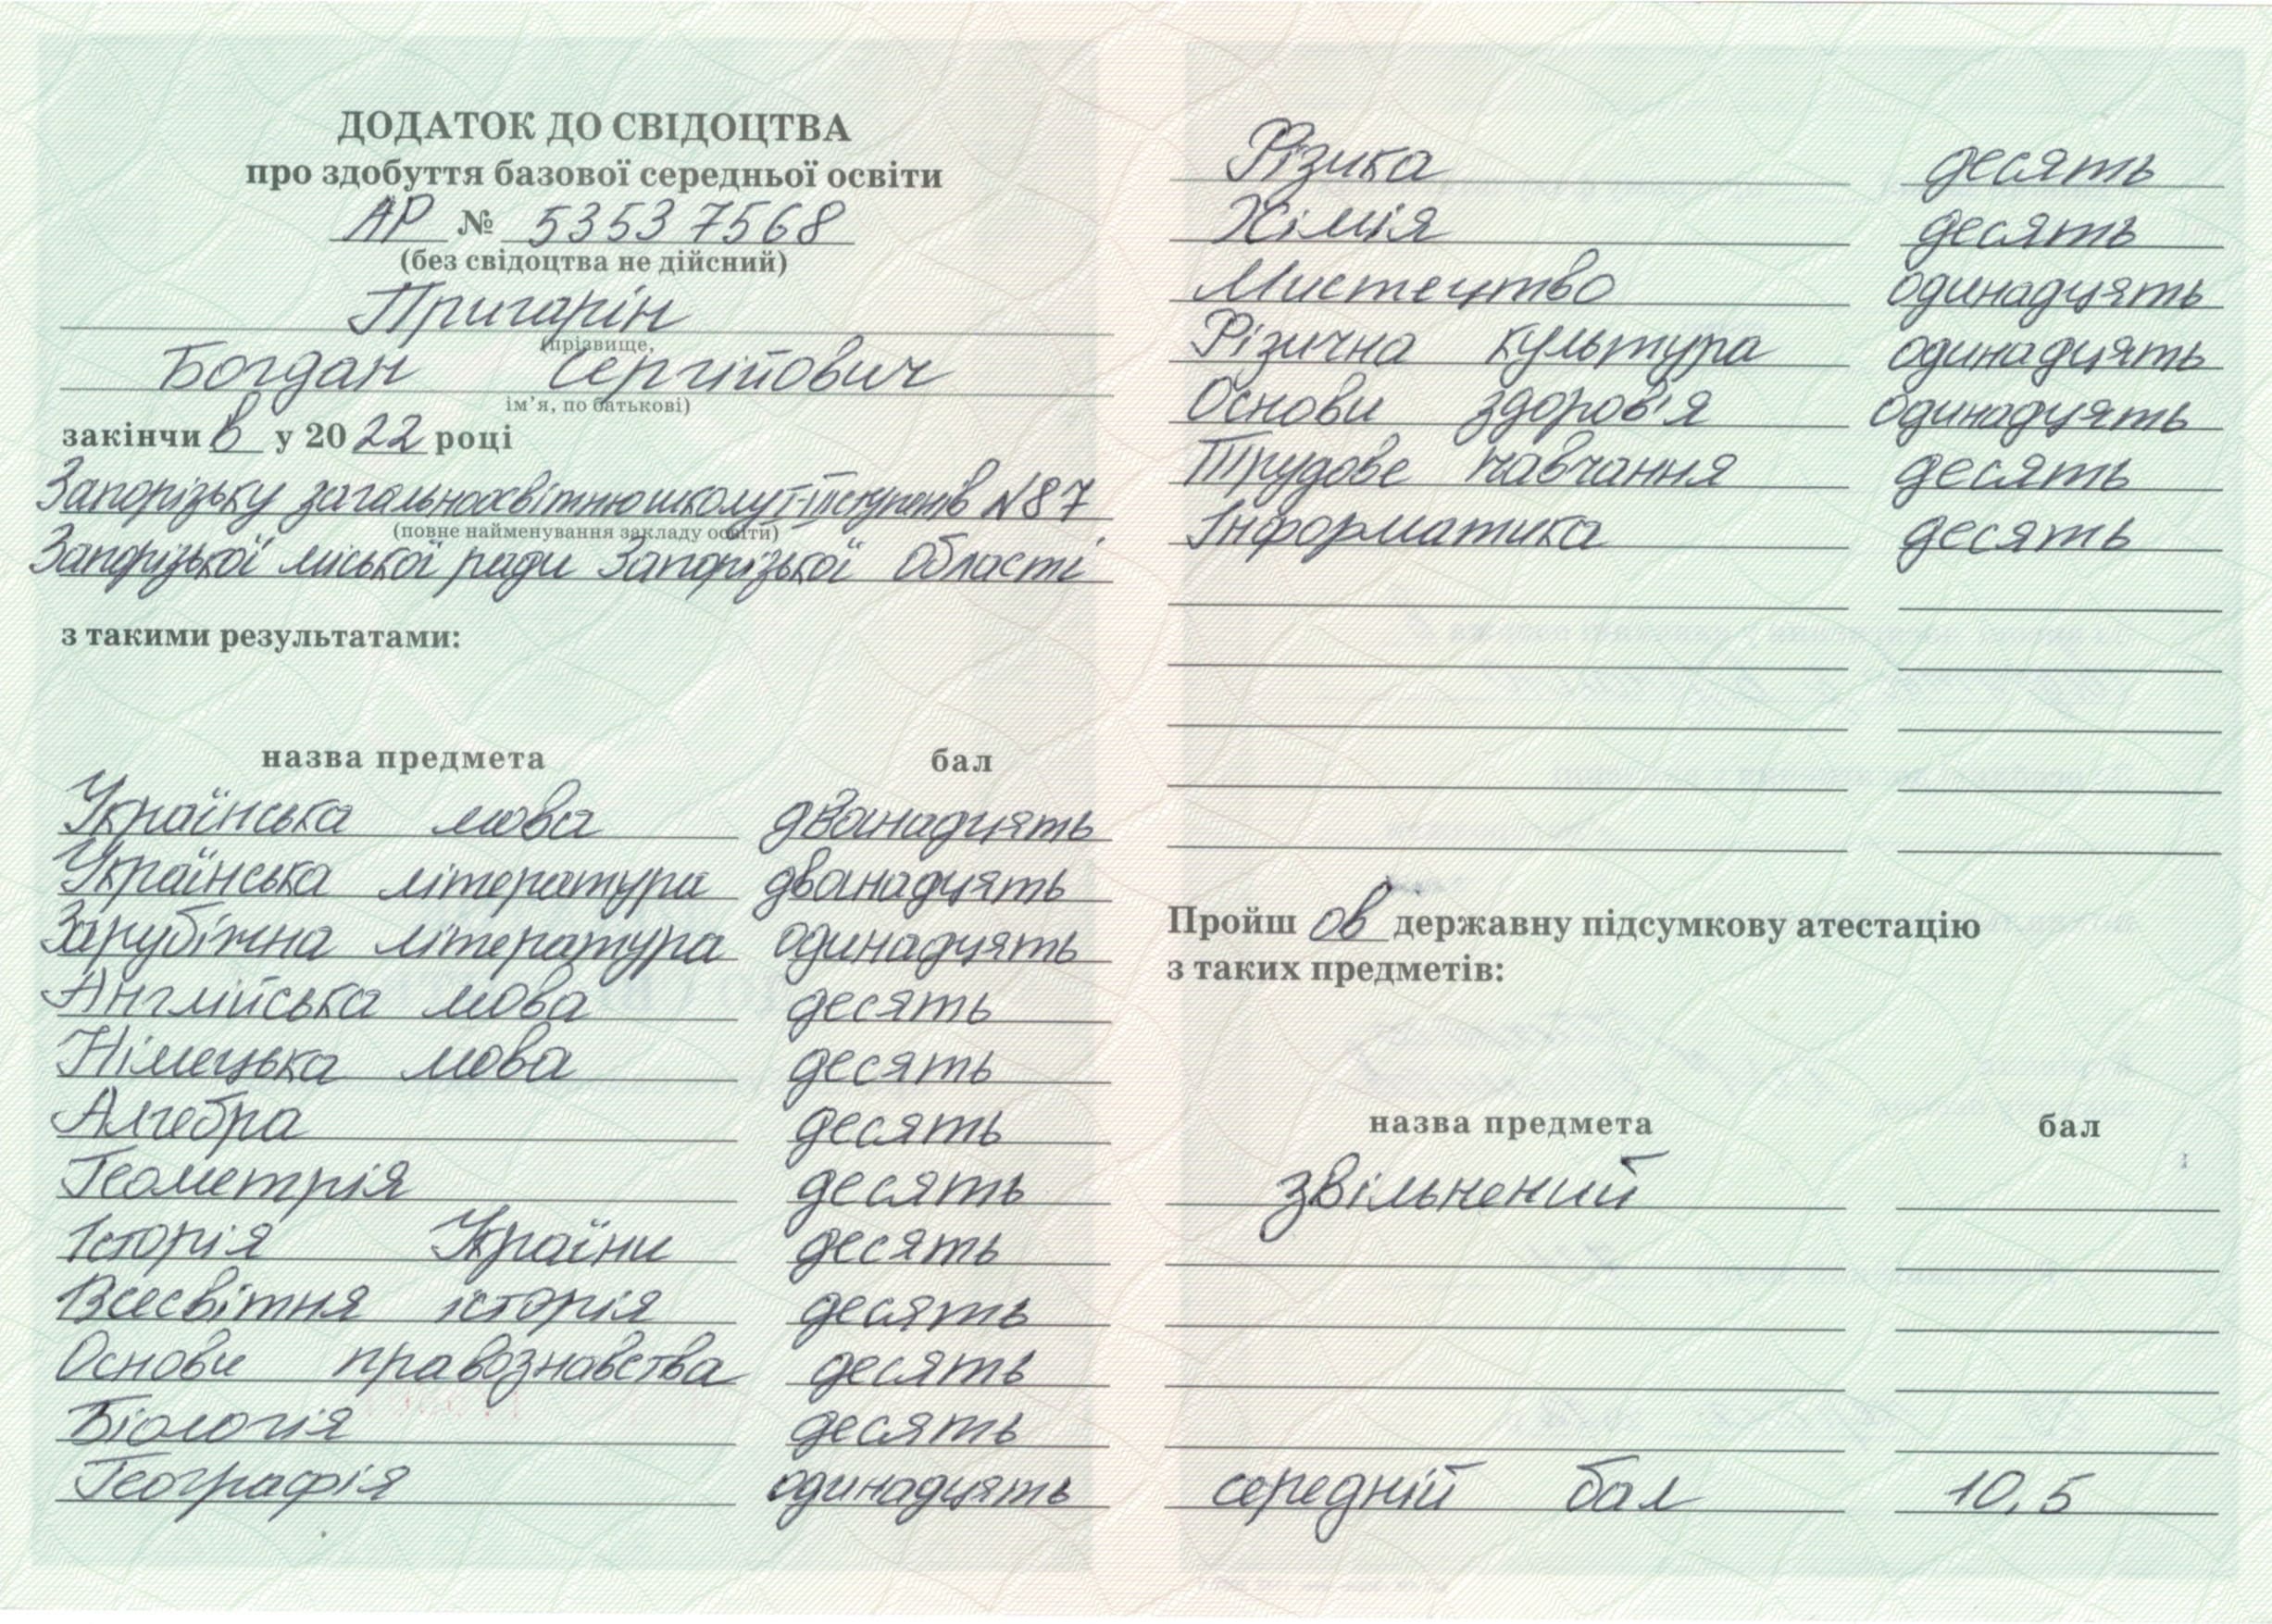 ДОДАТОК ДО СВІДОЦТВА
про здобуття базової середньої освіти
АР № 53537568
(без свідоцтва не дійсний)
Пригарін
(прізвище,
Богдан Сергійович
ім'я, по батькові)
закінчив у 2022 році
Запорізьку загальноосвітню школу І-ІІІ ступенів №87
(повне найменування закладу освіти)
Запорізької міської ради Запорізької області
з такими результатами:
назва предмета бал
Українська мова дванадцять
Українська література дванадцять
Зарубіжна література одинадцять
Англійська мова десять
Німецька мова десять
Алгебра десять
Геометрія десять
Історія України десять
Всесвітня історія десять
Основи правознавства десять
Біологія десять
Географія одинадцять
Фізика десять
Хімія десять
Мистецтво одинадцять
Фізична культура одинадцять
Основи здоров'я одинадцять
Трудове навчання десять
Інформатика десять
Пройшов державну підсумкову атестацію
з таких предметів:
назва предмета бал
звільнений
середній бал 10,5